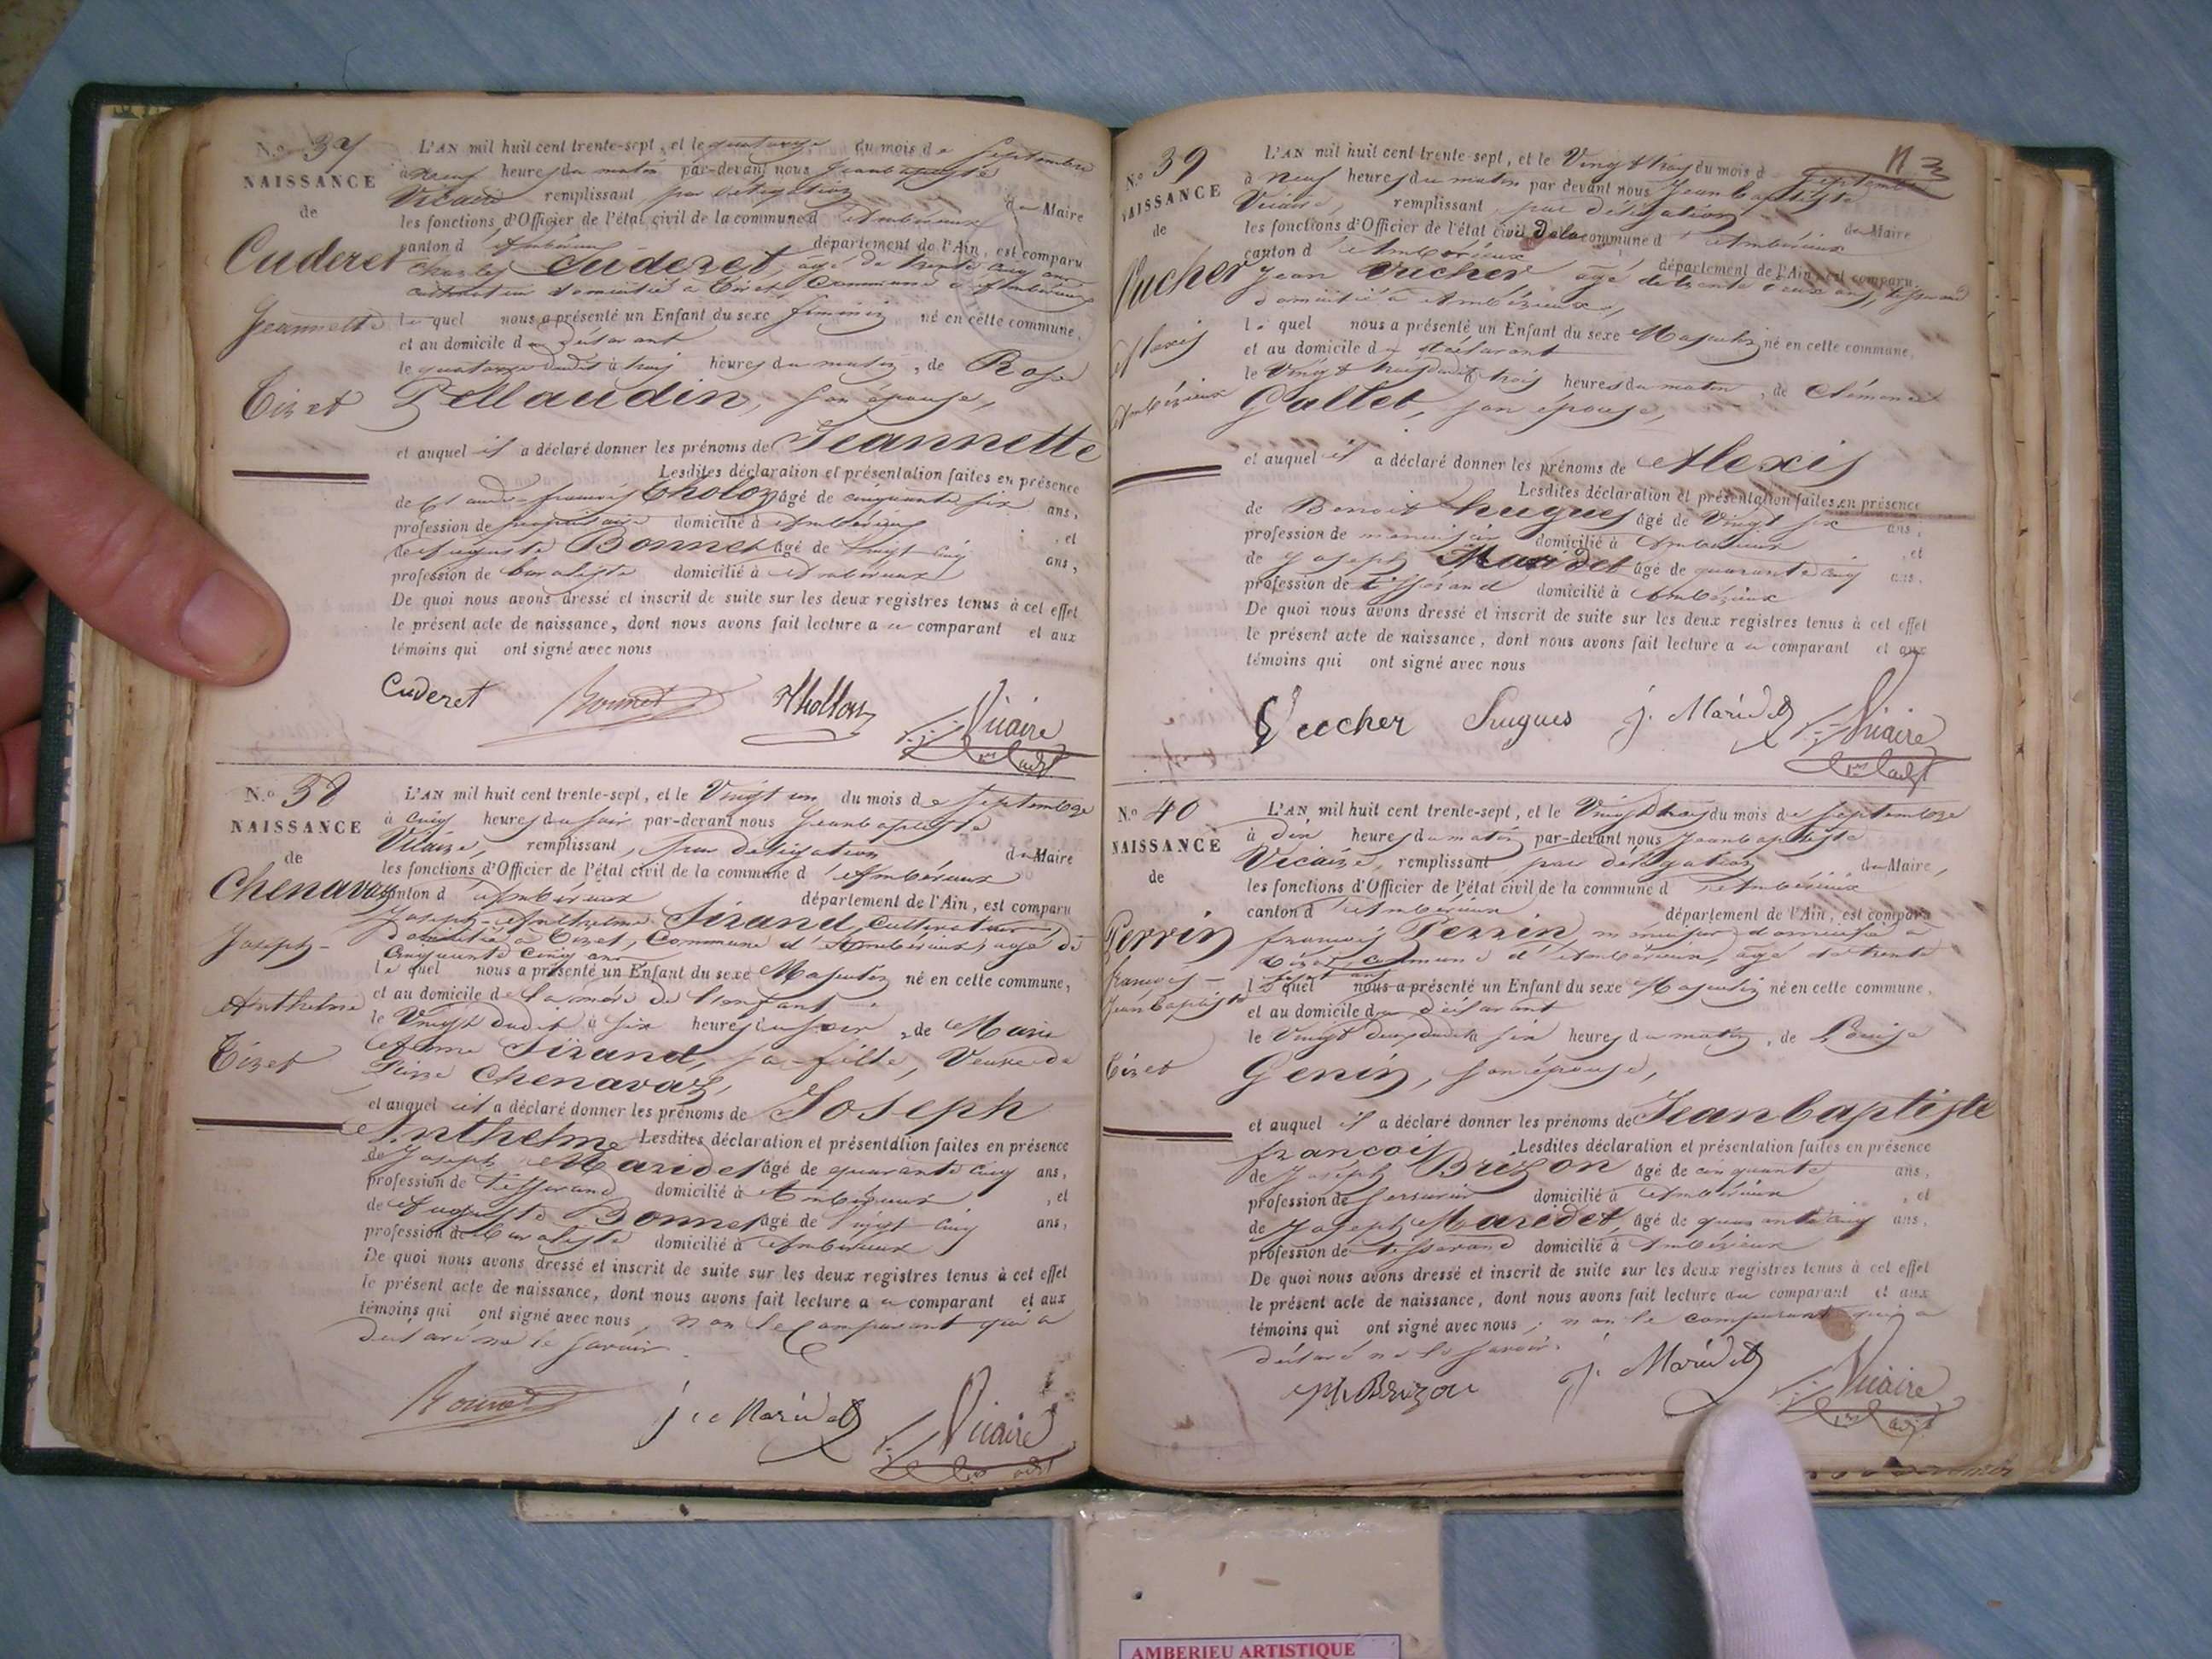 N.o 37
NAISSANCE
de
Cuderet
Jeannette
Tiret
L'AN mil huit cent trente-sept, et le quatorze du mois de Septembre
à neuf heures du matin par-devant nous Jeanbaptiste
Vicaire remplissant par délégation du Maire
les fonctions d'Officier de l'état civil de la commune d'Ambérieux
canton d'Ambérieux département de l'Ain, est comparu
Charles Cuderet, âgé de trente cinq ans
cultivateur domicilié à Tiret, Commune d'Ambérieux
lequel nous a présenté un Enfant du sexe féminin né en cette commune,
et au domicile du déclarant
le quatorze dudit à trois heures du matin, de Rose
Pellaudin, son épouse,
et auquel il a déclaré donner les prénoms de Jeannette
Lesdites déclaration et présentation faites en présence
de Claude-françois Tholon âgé de cinquante six ans,
profession de propriétaire domicilié à Ambérieux, et
de Auguste Bonnet âgé de vingt cinq ans,
profession de buraliste domicilié à Ambérieux
De quoi nous avons dressé et inscrit de suite sur les deux registres tenus à cet effet
le présent acte de naissance, dont nous avons fait lecture au comparant et aux
témoins qui ont signé avec nous
Cuderet Bonnet Thollon Vicaire
N.o 38
NAISSANCE
de
Chenavaz
Joseph-
Anthelme
Tiret
L'AN mil huit cent trente-sept, et le Vingt un du mois de Septembre
à cinq heures du soir par-devant nous Jeanbaptiste
Vicaire, remplissant, par délégation du Maire
les fonctions d'Officier de l'état civil de la commune d'Ambérieux
canton d'Ambérieux département de l'Ain, est comparu
Joseph-Anthelme Sirand, Cultivateur,
domicilié à Tiret, Commune d'Ambérieux, âgé de
Cinquante cinq ans
lequel nous a présenté un Enfant du sexe Masculin né en cette commune,
et au domicile de la mère de l'enfant
le Vingt dudit à six heures du soir, de Marie
Sirand, sa fille, Veuve de
Pierre Chenavaz,
et auquel il a déclaré donner les prénoms de Joseph
Anthelme Lesdites déclaration et présentation faites en présence
de Joseph Maridet âgé de quarante cinq ans,
profession de tisserand domicilié à Ambérieux, et
de Auguste Bonnet âgé de vingt cinq ans,
profession de Buraliste domicilié à Ambérieux
De quoi nous avons dressé et inscrit de suite sur les deux registres tenus à cet effet
le présent acte de naissance, dont nous avons fait lecture au comparant et aux
témoins qui ont signé avec nous, non le Comparant qui a
déclaré ne le savoir.
Bonnet j. Maridet Vicaire
N.o 39
NAISSANCE
de
Vucher
Alexis
Ambérieux
L'AN mil huit cent trente-sept, et le Vingt trois du mois de Septembre
à neuf heures du matin par devant nous Jean baptiste
Vicaire, remplissant par délégation du Maire
les fonctions d'Officier de l'état civil de la commune d'Ambérieux
canton d'Ambérieux département de l'Ain, est comparu
Jean Vucher âgé de trente deux ans, tisserand
domicilié à Ambérieux,
lequel nous a présenté un Enfant du sexe Masculin né en cette commune,
et au domicile du déclarant
le Vingt trois dudit à trois heures du matin, de Clémence
Gallet, son épouse,
et auquel il a déclaré donner les prénoms de Alexis
Lesdites déclaration et présentation faites en présence
de Benoit hugues âgé de Vingt six ans,
profession de menuisier domicilié à Ambérieux, et
de Joseph Maridet âgé de quarante cinq ans,
profession de tisserand domicilié à Ambérieux
De quoi nous avons dressé et inscrit de suite sur les deux registres tenus à cet effet
le présent acte de naissance, dont nous avons fait lecture au comparant et aux
témoins qui ont signé avec nous
Vucher hugues j. Maridet Vicaire
N.o 40
NAISSANCE
de
Perrin
françois-
Jeanbaptiste
Tiret
L'AN mil huit cent trente-sept, et le Vingt trois du mois de Septembre
à dix heures du matin par-devant nous Jeanbaptiste
Vicaire, remplissant par délégation du Maire,
les fonctions d'Officier de l'état civil de la commune d'Ambérieux
canton d'Ambérieux département de l'Ain, est comparu
françois Perrin, domicilié à
Tiret, commune d'Ambérieux, âgé de trente
sept ans
lequel nous a présenté un Enfant du sexe Masculin né en cette commune,
et au domicile du déclarant
le Vingt deux dudit à six heures du matin, de Louise
Genin, son épouse,
et auquel il a déclaré donner les prénoms de Jeanbaptiste
françois Lesdites déclaration et présentation faites en présence
de Joseph Brizon âgé de cinquante ans,
profession de serrurier domicilié à Ambérieux, et
de Joseph Maridet, âgé de quarante cinq ans,
profession de tisserand domicilié à Ambérieux
De quoi nous avons dressé et inscrit de suite sur les deux registres tenus à cet effet
le présent acte de naissance, dont nous avons fait lecture au comparant et aux
témoins qui ont signé avec nous, non le comparant qui a
déclaré ne le savoir.
Brizon j. Maridet Vicaire
AMBERIEU ARTISTIQUE